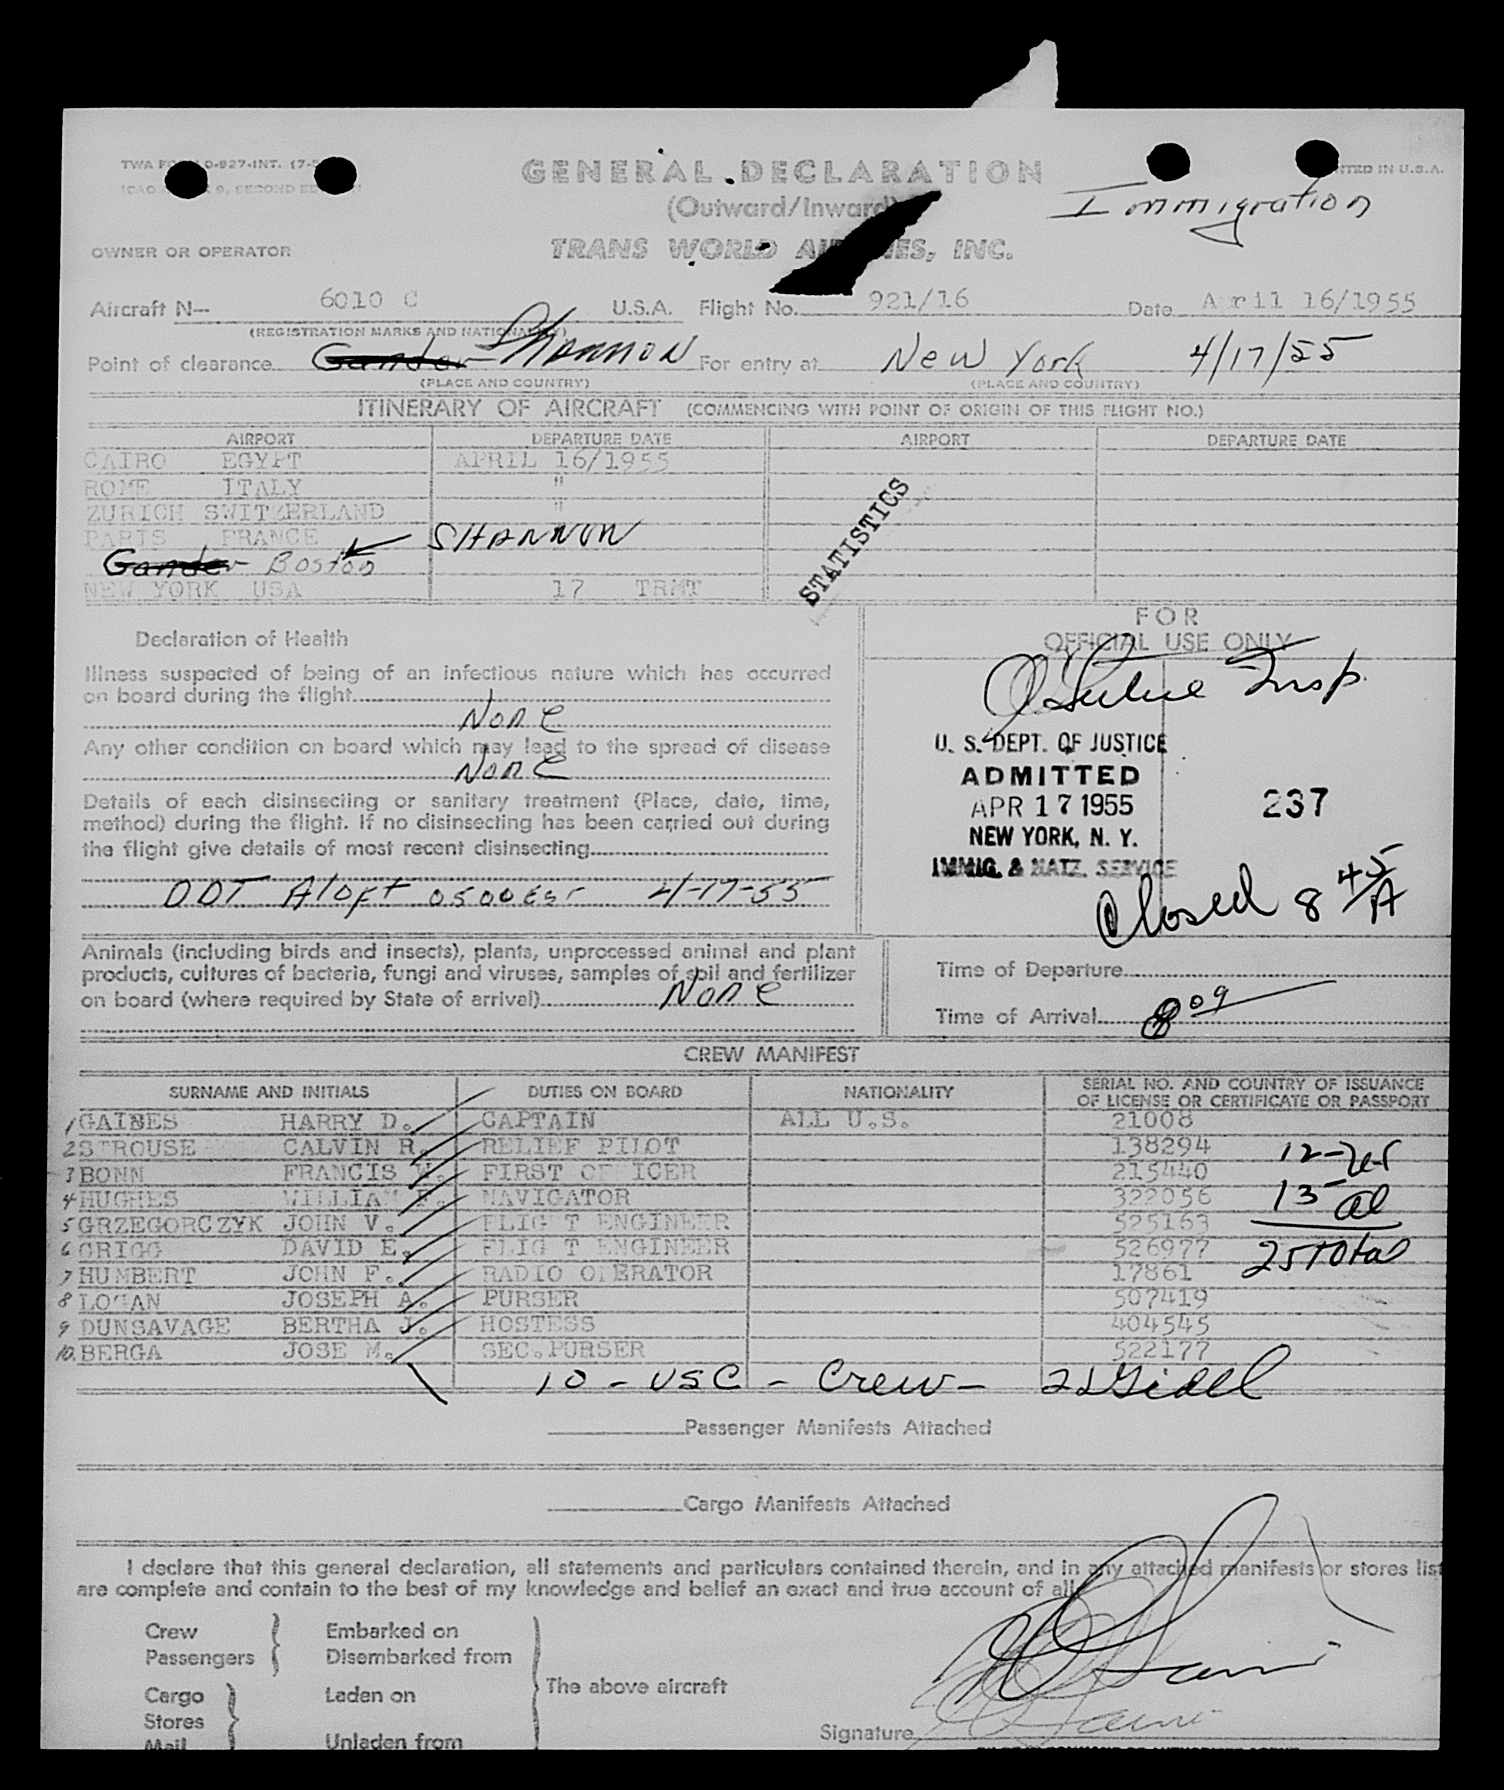 GENERAL DECLARATION
(Outward/Inward)
Immigration
OWNER OR OPERATOR TRANS WORLD AIRLINES, INC.
Aircraft N— 6010 C U.S.A. Flight No. 921/16 Date April 16/1955
(REGISTRATION MARKS AND NATIONALITY)
Point of clearance Gander Shannon For entry at New York 4/17/55
(PLACE AND COUNTRY) (PLACE AND COUNTRY)
ITINERARY OF AIRCRAFT (COMMENCING WITH POINT OF ORIGIN OF THIS FLIGHT NO.)
AIRPORT DEPARTURE DATE AIRPORT DEPARTURE DATE
CAIRO EGYPT APRIL 16/1955
ROME ITALY "
ZURICH SWITZERLAND "
PARIS FRANCE
SHANNON
Gander Boston
NEW YORK USA 17 TRMT
STATISTICS
Declaration of Health
Illness suspected of being of an infectious nature which has occurred
on board during the flight
None
Any other condition on board which may lead to the spread of disease
None
Details of each disinsecting or sanitary treatment (Place, date, time,
method) during the flight. If no disinsecting has been carried out during
the flight give details of most recent disinsecting
DDT Aloft 0500 Est 4-17-55
FOR
OFFICIAL USE ONLY
Insp.
U. S. DEPT. OF JUSTICE
ADMITTED
APR 17 1955 237
NEW YORK, N. Y.
IMMIG. & NATZ. SERVICE
Closed 8 45/A
Animals (including birds and insects), plants, unprocessed animal and plant
products, cultures of bacteria, fungi and viruses, samples of soil and fertilizer
on board (where required by State of arrival) None
Time of Departure
Time of Arrival 8 09
CREW MANIFEST
SURNAME AND INITIALS DUTIES ON BOARD NATIONALITY SERIAL NO. AND COUNTRY OF ISSUANCE
OF LICENSE OR CERTIFICATE OR PASSPORT
1 GAINES HARRY D. CAPTAIN ALL U.S. 21008
2 STROUSE CALVIN R. RELIEF PILOT 138294
3 BONN FRANCIS FIRST OFFICER 215440
4 HUGHES WILLIAM F. NAVIGATOR 322056
5 GRZEGORCZYK JOHN V. FLIG T ENGINEER 525163
6 GRIGG DAVID E. FLIG T ENGINEER 526977
7 HUMBERT JOHN F. RADIO OPERATOR 17861
8 LOGAN JOSEPH A. PURSER 507419
9 DUNSAVAGE BERTHA J. HOSTESS 404545
10. BERGA JOSE M. SEC.PURSER 522177
12-
13 al
25 total
10 - USC - Crew -
Passenger Manifests Attached
Cargo Manifests Attached
I declare that this general declaration, all statements and particulars contained therein, and in any attached manifests or stores list
are complete and contain to the best of my knowledge and belief an exact and true account of all
Crew Embarked on
Passengers Disembarked from
The above aircraft
Cargo Laden on
Stores
Mail Unladen from
Signature